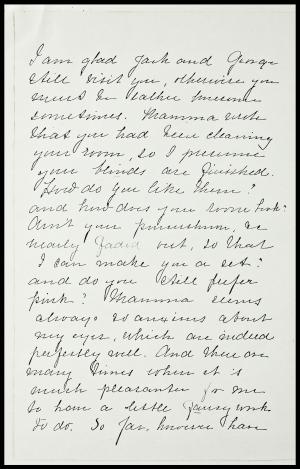 I am glad Jack and George
still visit you, otherwise you
must be rather lonesome
sometimes. Mamma wrote
that you had been cleaning
your room, so I presume
your blinds are finished.
How do you like them?
and how does your room look?
Ain't your pincushion, as
nearly faded out, so that
I can make you a set?
and do you still prefer
pink? Mamma seems
always so anxious about
my eyes, which are indeed
perfectly well. And there are
many times when it is
much pleasanter for me
to have a little fancy work
to do. So far, however have